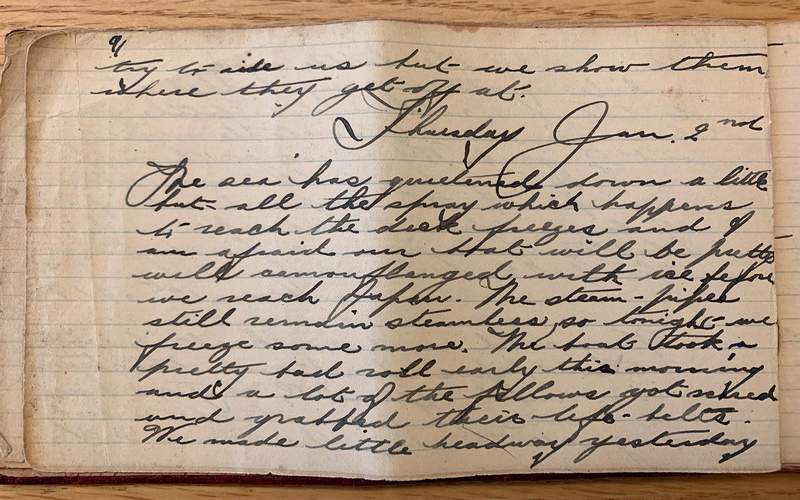 9
try to ride us but we show them
where they get off at.
Thursday Jan. 2nd
The sea has quietened down a little
but all the spray which happens
to reach the deck freezes and I
am afraid our boat will be pretty
well camouflanged with ice before
we reach Japan. The steam-pipes
still remain steamless, so tonight we
freeze some more. The boat took a
pretty bad roll early this morning
and a lot of the fellows got scared
and grabbed their life-belts.
We made little headway yesterday